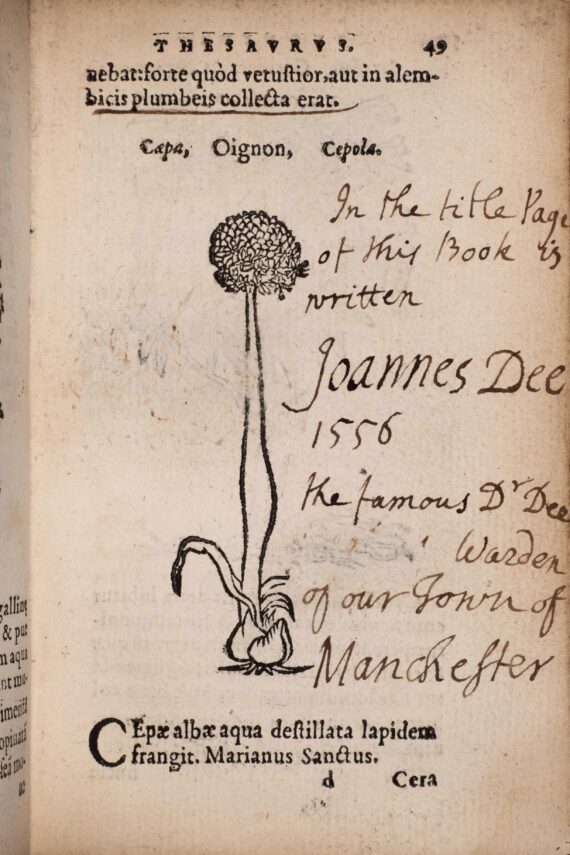 THESAVRVS. 49
nebat: forte quòd vetustior, aut in alem-
bicis plumbeis collecta erat.
Cæpa, Oignon, Cepola.
In the title Page
of this Book is
written
Joannes Dee
1556
the famous Dr Dee
Warden
of our Town of
Manchester
CEpæ albæ aqua destillata lapidem
frangit. Marianus Sanctus.
d Cera
galline
& pue
m aqua